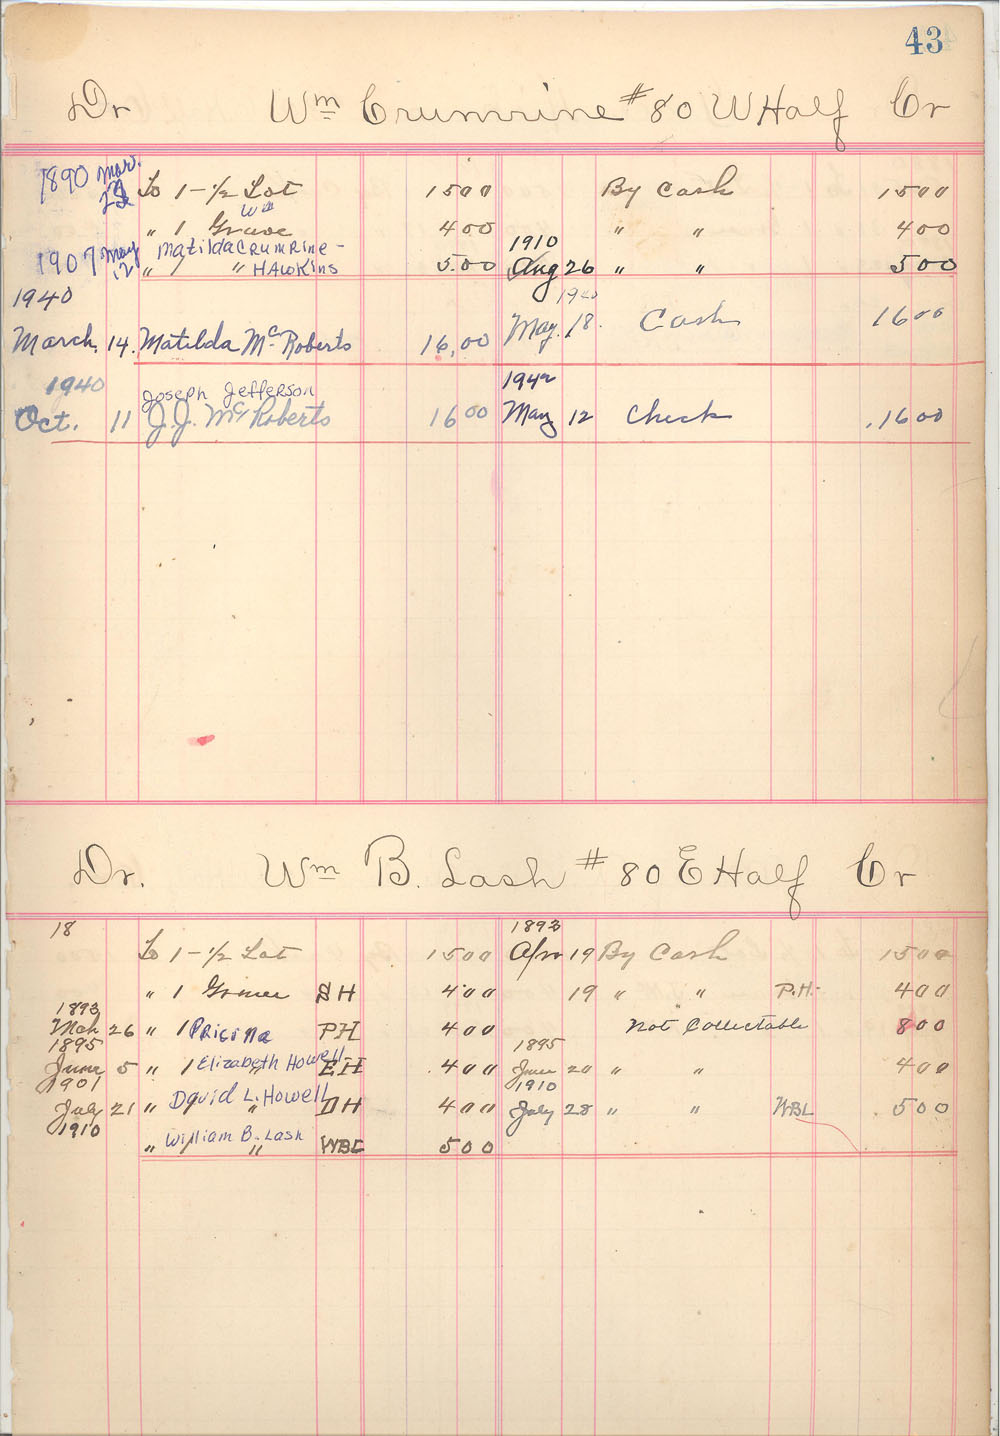 43
Dr Wm Crumrine #80 W Half Cr
1890 Mar. To 1 - 1/2 Lot 1500 By Cash 1500
Wm
" 1 Grave 400 " " 400
1907 May 12 " Matilda Crumrine - 1910
" " Hawkins 5.00 Aug 26 " " 500
1940 1940
March. 14. Matilda McRoberts 16,00 May. 18. Cash 1600
1940 Joseph Jefferson 1942
Oct. 11 J.J. McRoberts 1600 May 12 Check 1600
Dr. Wm B. Lash #80 E Half Cr
18 1893
To 1 - 1/2 Lot 1500 Apr 19 By Cash 1500
" 1 Grave SH 400 19 " " P.H. 400
1893
Mch 26 " 1 Pricilla PH 400 Not Collectable 800
1895 1895
June 5 " 1 Elizabeth Howell EH 400 June 20 " " 400
1901 1910
July 21 " David L. Howell " DH 400 July 28 " " WBL 500
1910
" William B. Lash " WBL 500